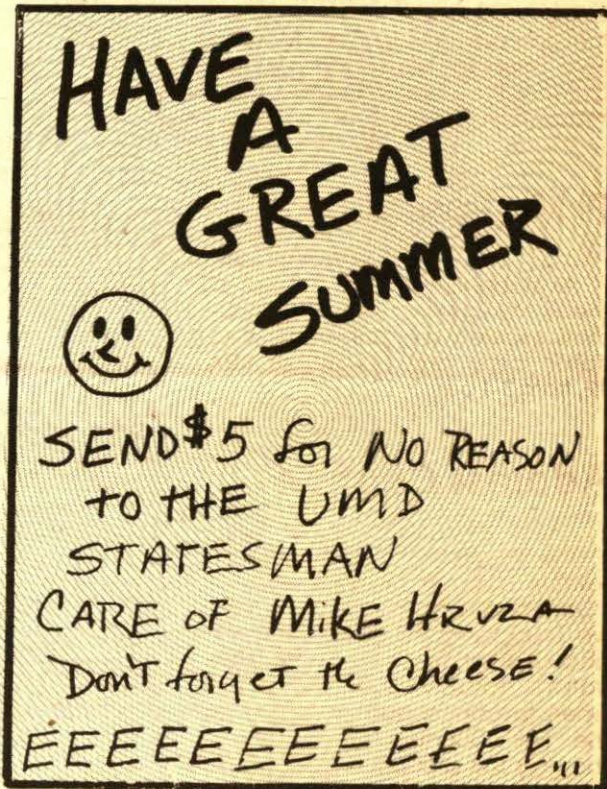 HAVE
A
GREAT
SUMMER
SEND $5 for NO REASON
TO THE UMD
STATESMAN
CARE OF MIKE HRUZA
Don't forget the Cheese!
EEEEEEEEEEEEE...